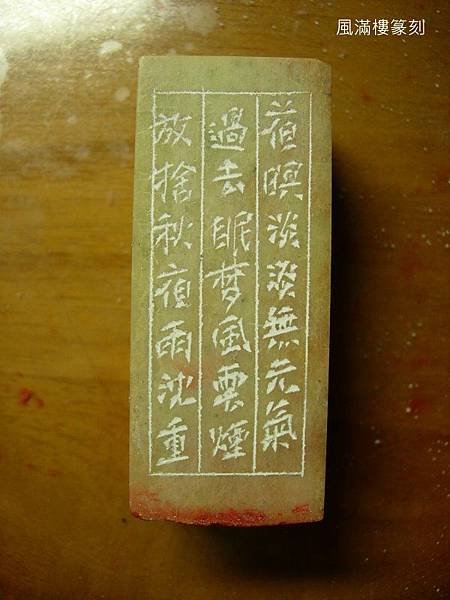 風滿樓篆刻
夜暝淡淡無元氣
過去眠梦風雲煙
放捨秋夜雨沈重